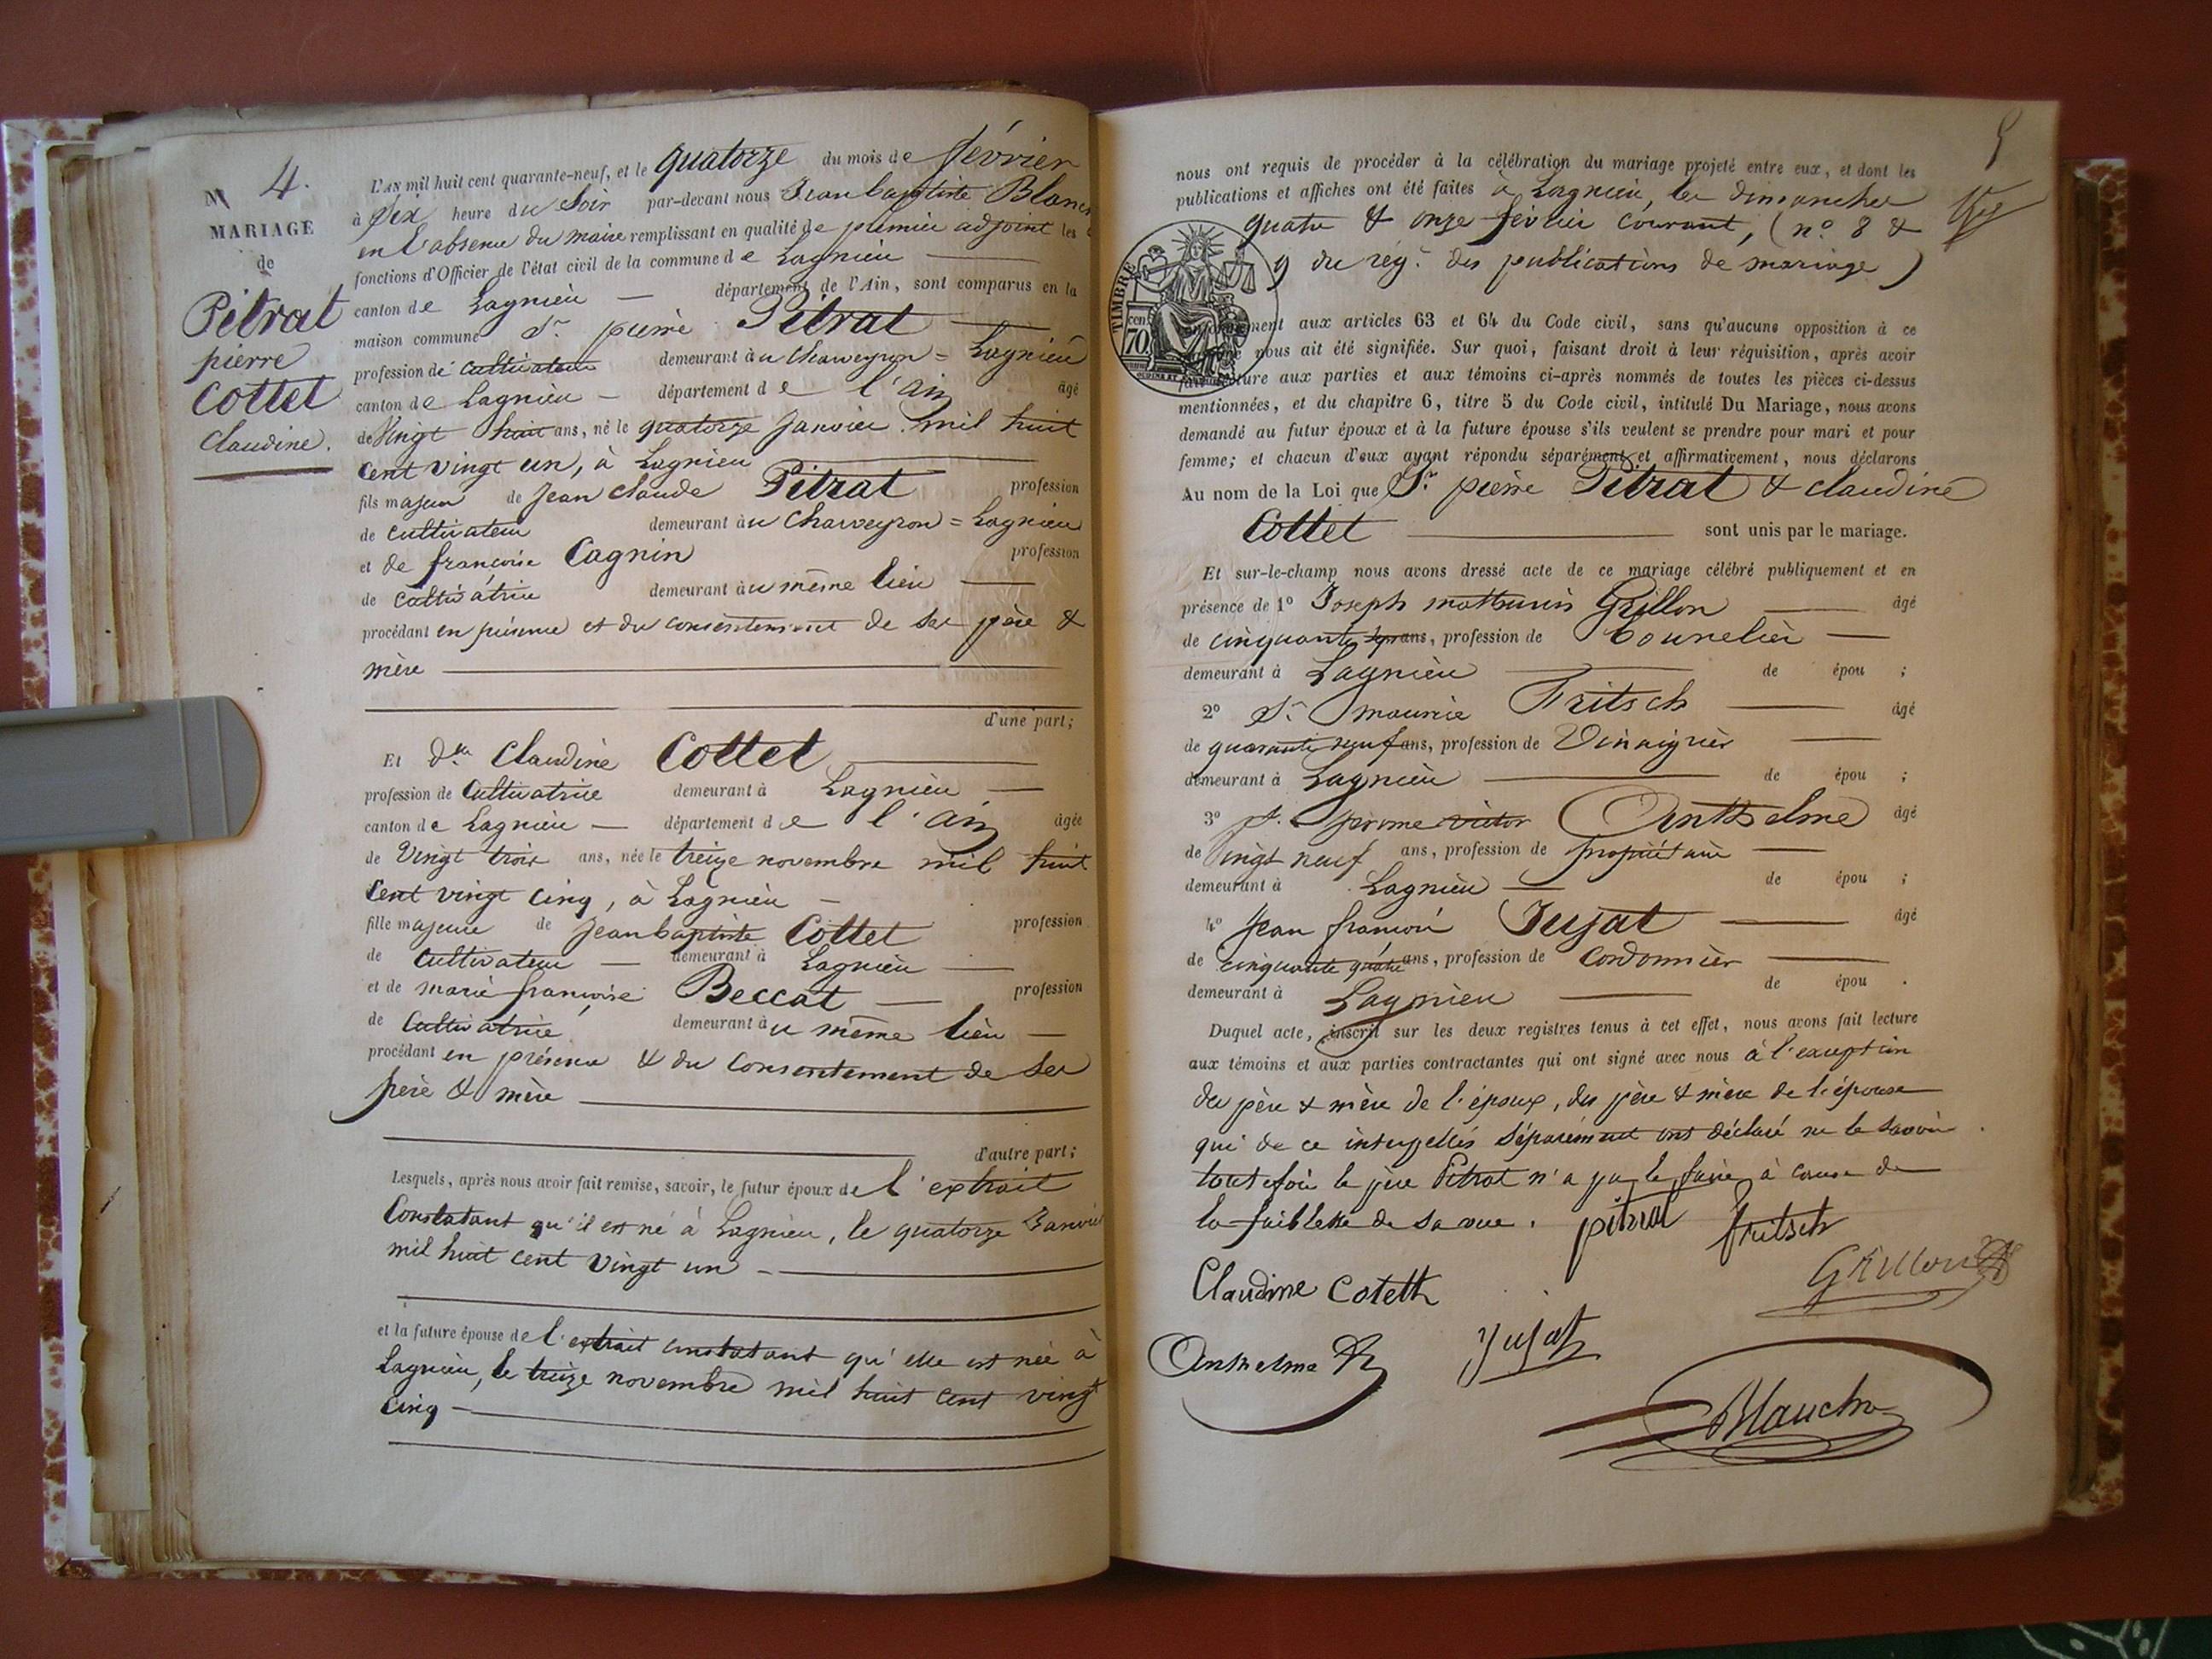 N 4.
MARIAGE
de
Pitrat
pierre
Cottet
Claudine.
L'AN mil huit cent quarante-neuf, et le quatorze du mois de février
à Six heure du Soir par-devant nous Jean baptiste Blanch
en l'absence du maire remplissant en qualité de premier adjoint les
fonctions d'Officier de l'état civil de la commune de Lagnieu
canton de Lagnieu département de l'Ain, sont comparus en la
maison commune Sr pierre Pitrat
profession de cultivateur demeurant au Charveyron = Lagnieu
canton de Lagnieu département de l'ain âgé
de Vingt huit ans, né le quatorze janvier mil huit
Cent vingt un, à Lagnieu
fils majeur de Jean Claude Pitrat profession
de cultivateur demeurant au Charveyron = Lagnieu
et de françoise Cagnin profession
de cultivatrice demeurant au même lieu
procédant en présence et du consentement de ses père &
mère
d'une part;
Et Dlle Claudine Cottet
profession de Cultivatrice demeurant à Lagnieu
canton de Lagnieu département de l'ain âgée
de Vingt trois ans, née le treize novembre mil huit
Cent vingt cinq, à Lagnieu
fille majeure de Jean baptiste Cottet profession
de Cultivateur demeurant à Lagnieu
et de marie françoise Beccat profession
de Cultivatrice demeurant au même lieu
procédant en présence & du Consentement de ses
père & mère
d'autre part;
Lesquels, après nous avoir fait remise, savoir, le futur époux de l'extrait
Constatant qu'il est né à Lagnieu, le quatorze Janvier
mil huit cent vingt un
et la future épouse de l'extrait constatant qu'elle est née à
Lagnieu, le treize novembre mil huit cent vingt
cinq
5
nous ont requis de procéder à la célébration du mariage projeté entre eux, et dont les
publications et affiches ont été faites à Lagnieu, les dimanches
quatre & onze février courant, (no. 8 &
9 du rég. des publications de mariage)
TIMBRE
cen
70.
aux articles 63 et 64 du Code civil, sans qu'aucune opposition à ce
nous ait été signifiée. Sur quoi, faisant droit à leur réquisition, après avoir
fait lecture aux parties et aux témoins ci-après nommés de toutes les pièces ci-dessus
mentionnées, et du chapitre 6, titre 5 du Code civil, intitulé Du Mariage, nous avons
demandé au futur époux et à la future épouse s'ils veulent se prendre pour mari et pour
femme; et chacun d'eux ayant répondu séparément et affirmativement, nous déclarons
Au nom de la Loi que Sr. pierre Pitrat & claudine
Cottet sont unis par le mariage.
Et sur-le-champ nous avons dressé acte de ce mariage célébré publiquement et en
présence de 1º Joseph mathurin Grillon âgé
de cinquante ans, profession de tounelier
demeurant à Lagnieu de épou ;
2º Sr. maurice Fritsch âgé
de quarante neuf ans, profession de Vinaigrier
demeurant à Lagnieu de épou ;
3º Sr. jerome victor Anthelme âgé
de Vingt neuf ans, profession de propriétaire
demeurant à Lagnieu de épou ;
4º Jean françois Jujat âgé
de cinquante quatre ans, profession de Cordonnier
demeurant à Lagnieu de épou .
Duquel acte, inscrit sur les deux registres tenus à cet effet, nous avons fait lecture
aux témoins et aux parties contractantes qui ont signé avec nous à l'exception
des père & mère de l'époux, des père & mère de l'épouse
qui de ce interpellés séparément ont déclaré ne le savoir
toutefois le père Pitrat n'a pu le faire à cause de
la faiblesse de sa vue. pitrat fritsch
Grillon
Claudine Coteth
Anthelme Jujat
Blanchn